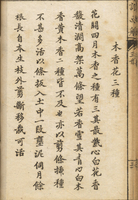 木香花三種
花開四月木香之種有三其最紫心白花香
馥清潤高架萬條望若香雪其青心白木
香黃木香二種皆不及也亦以剪條插種
不甚多活以條扳入土中一段壅泥月餘
根長自本生枝外剪斷移栽可活